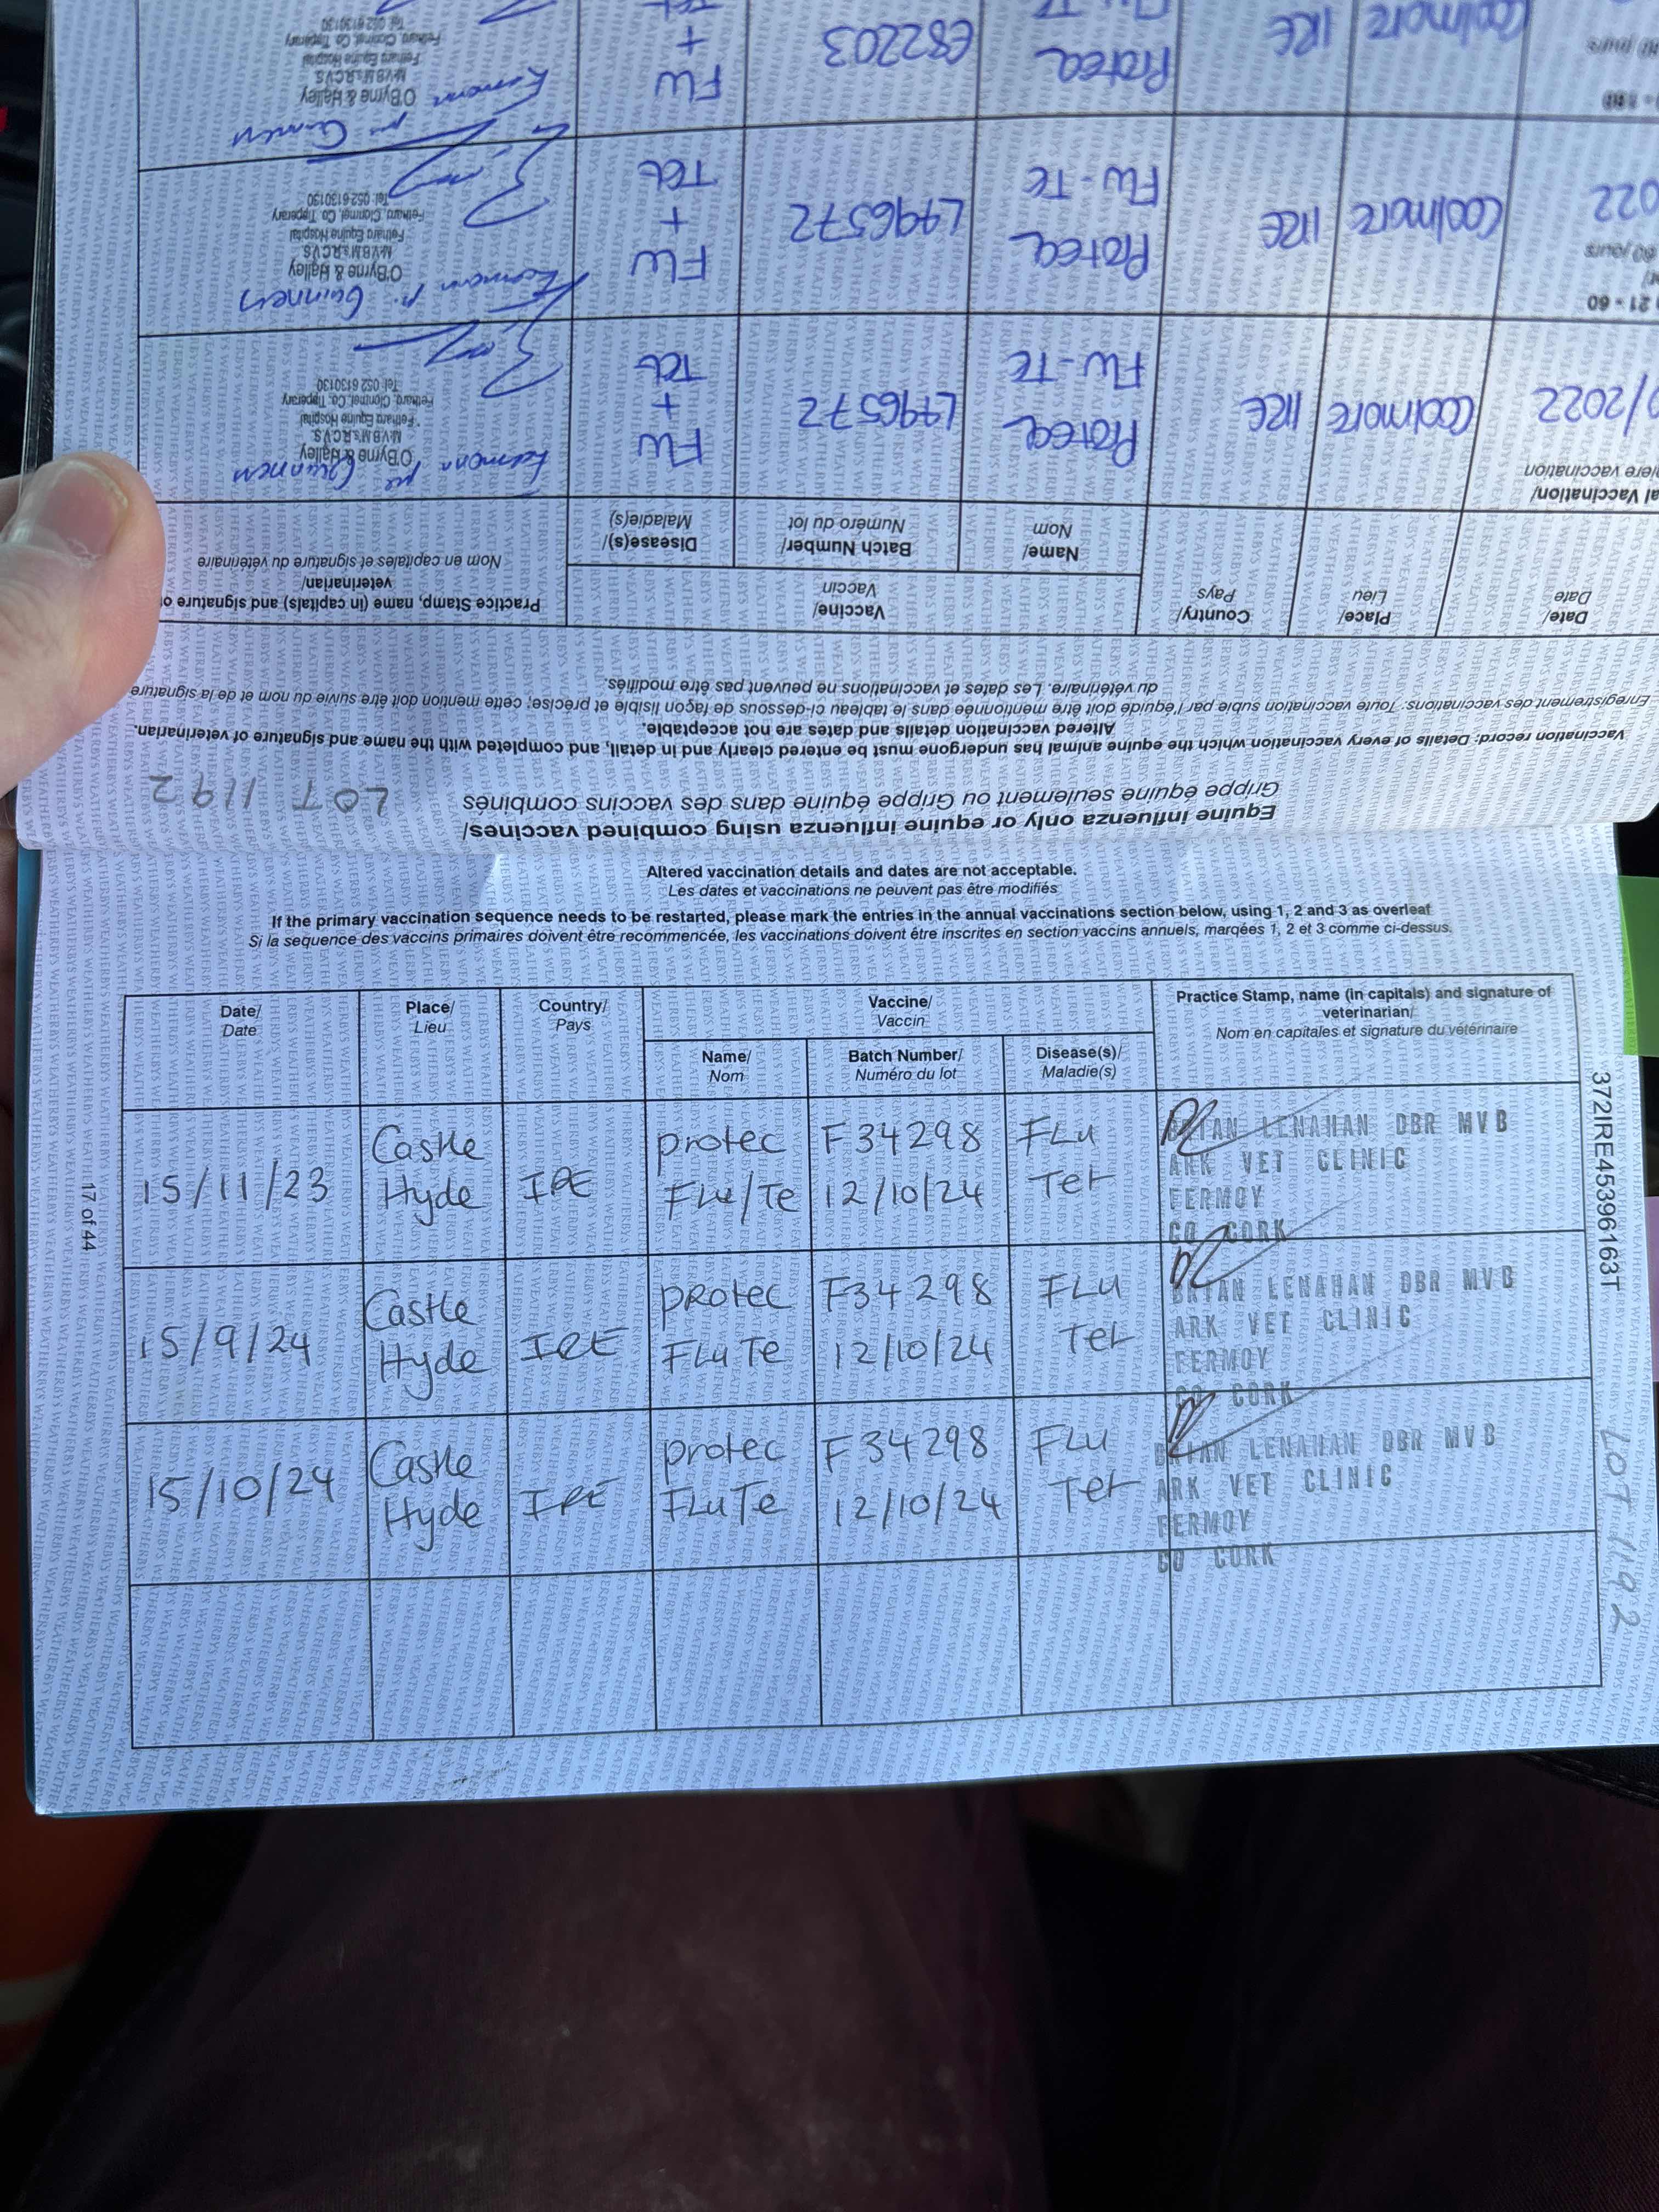 Equine influenza only or equine influenza using combined vaccines/
Grippe équine seulement ou Grippe équine dans des vaccins combinés
LOT 1192
Vaccination record: Details of every vaccination which the equine animal has undergone must be entered clearly and in detail, and completed with the name and signature of veterinarian.
Altered vaccination details and dates are not acceptable.
Enregistrement des vaccinations: Toute vaccination subie par l'équidé doit être mentionnée dans le tableau ci-dessous de façon lisible et précise; cette mention doit être suivie du nom et de la signature
du vétérinaire. Les dates et vaccinations ne peuvent pas être modifiés.
Date/
Date
Place/
Lieu
Country/
Pays
Vaccine/
Vaccin
Name/
Nom
Batch Number/
Numéro du lot
Disease(s)/
Maladie(s)
Practice Stamp, name (in capitals) and signature
veterinarian/
Nom en capitales et signature du vétérinaire
al Vaccination/
ière vaccination
/2022
Coolmore
IRE
Proteq
Flu-Te
L496572
FLU
+
Tet
Eamonn Mc Guinness
O'Byrne & Halley
MVBM's R.C.V.S.
Fethard Equine Hospital
Fethard, Clonmel, Co. Tipperary
Tel: 052 6130130
21 - 60
60 jours
022
Coolmore
IRE
Proteq
Flu-Te
L496572
FLU
+
Tet
Eamonn Mc Guinness
O'Byrne & Halley
MVBM's R.C.V.S.
Fethard Equine Hospital
Fethard, Clonmel, Co. Tipperary
Tel: 052 6130130
jours
Coolmore
IRE
Proteq
E82203
FLU
+
Eamonn Mc Guinness
O'Byrne & Halley
MVBM's R.C.V.S.
Fethard Equine Hospital
Fethard, Clonmel, Co. Tipperary
Tel: 052 6130130
Altered vaccination details and dates are not acceptable.
Les dates et vaccinations ne peuvent pas être modifiés
If the primary vaccination sequence needs to be restarted, please mark the entries in the annual vaccinations section below, using 1, 2 and 3 as overleaf
Si la sequence des vaccins primaires doivent être recommencée, les vaccinations doivent être inscrites en section vaccins annuels, marqées 1, 2 et 3 comme ci-dessus.
Date/
Date
Place/
Lieu
Country/
Pays
Vaccine/
Vaccin
Name/
Nom
Batch Number/
Numéro du lot
Disease(s)/
Maladie(s)
Practice Stamp, name (in capitals) and signature of
veterinarian/
Nom en capitales et signature du vétérinaire
15/11/23
Castle
Hyde
IRE
protec
Flu/Te
F34298
12/10/24
FLu
Tet
BRIAN LENAHAN DBR MVB
ARK VET CLINIC
FERMOY
CO CORK
15/9/24
Castle
Hyde
IRE
protec
FLuTe
F34298
12/10/24
FLu
Tet
BRIAN LENAHAN DBR MVB
ARK VET CLINIC
FERMOY
CO CORK
15/10/24
Castle
Hyde
IRE
protec
FLuTe
F34298
12/10/24
FLu
Tet
BRIAN LENAHAN DBR MVB
ARK VET CLINIC
FERMOY
CO CORK
17 of 44
372IRE45396163T
LOT 1192